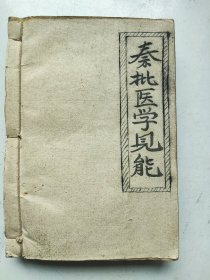 秦批医学见能